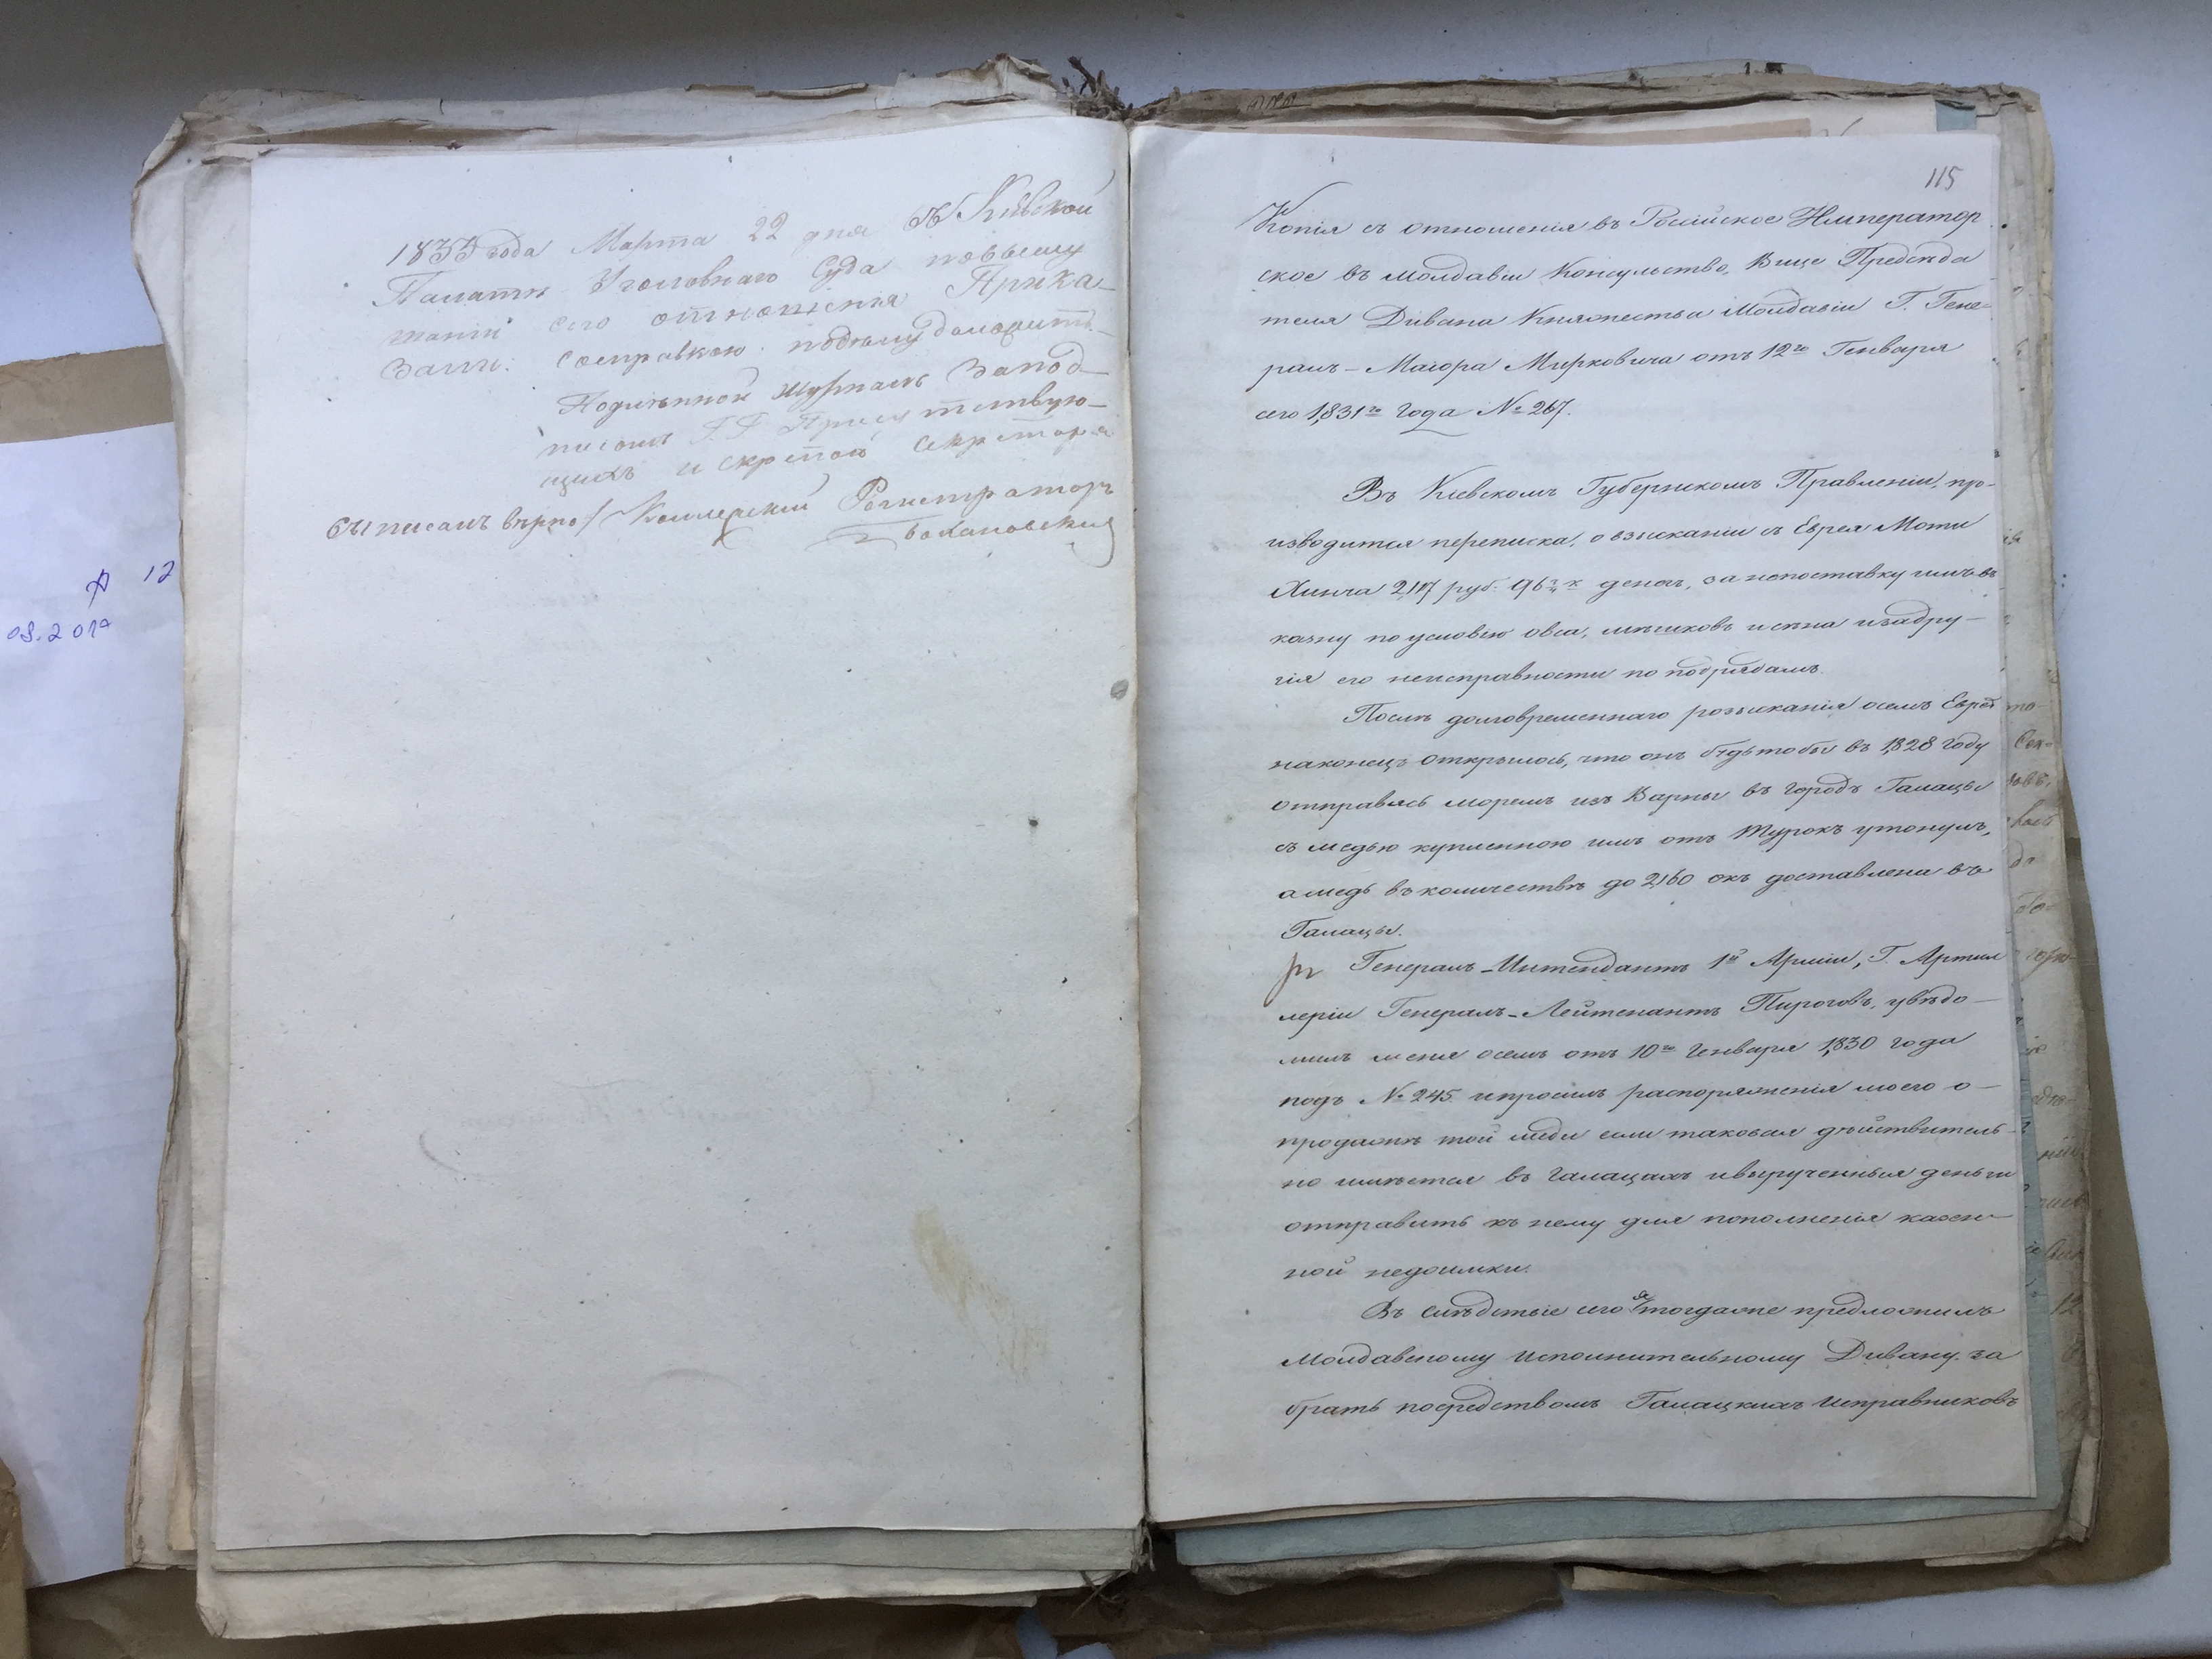 1833 года Марта 22 дня Въ Кіевской
Палатѣ Уголовнаго Суда
сего отношенія Прика-
зали: со справкою доложить.
Подлинной журналъ за под-
писомъ Г.Г. Присутствую-
щихъ и скрепой Секретаря
Съ писанъ вѣрно / Коллежскій Регистраторъ
115
Копія съ отношенія въ Россійское Император
ское въ Молдавіи Консульство, Вице Предсѣда
теля Дивана Княжества Молдавіи Г. Гене-
ралъ-Маіора Мирковича отъ 12го Генваря
сего 1831го Года № 267.
Въ Кіевскомъ Губернскомъ Правленіи, про-
изводится переписка, о взысканіи съ Еврея Мотни
руб. денегъ, за непоставку имъ въ
казну по условію овса, мѣшковъ и сѣна и за дру-
гія его неисправности по подрядамъ.
Послѣ долговременнаго розысканія о семъ Евреѣ
наконецъ открылось, что онъ будьто бы въ 1828 году
отправясь моремъ изъ Варны въ городъ Галацы
съ медью купленною имъ отъ Турокъ утонулъ,
а медь въ количествѣ до 2160 окъ доставлена въ
Галацы.
Генералъ-Интендантъ 1й Арміи, Г. Артил
леріи Генералъ-Лейтенантъ Пироговъ, увѣдо-
милъ меня о семъ отъ 10го Генваря 1830 года
подъ № 245 и просилъ распоряженія моего о-
продажѣ той меди если таковая дѣйствитель-
но имѣется въ Галацахъ и вырученныя деньги
отправить къ нему для пополненія казен-
ной недоимки.
Въ слѣдствіе сего я тогда же предложилъ
Молдавскому Исполнительному Дивану за
брать посредствомъ Галацкихъ Исправниковъ